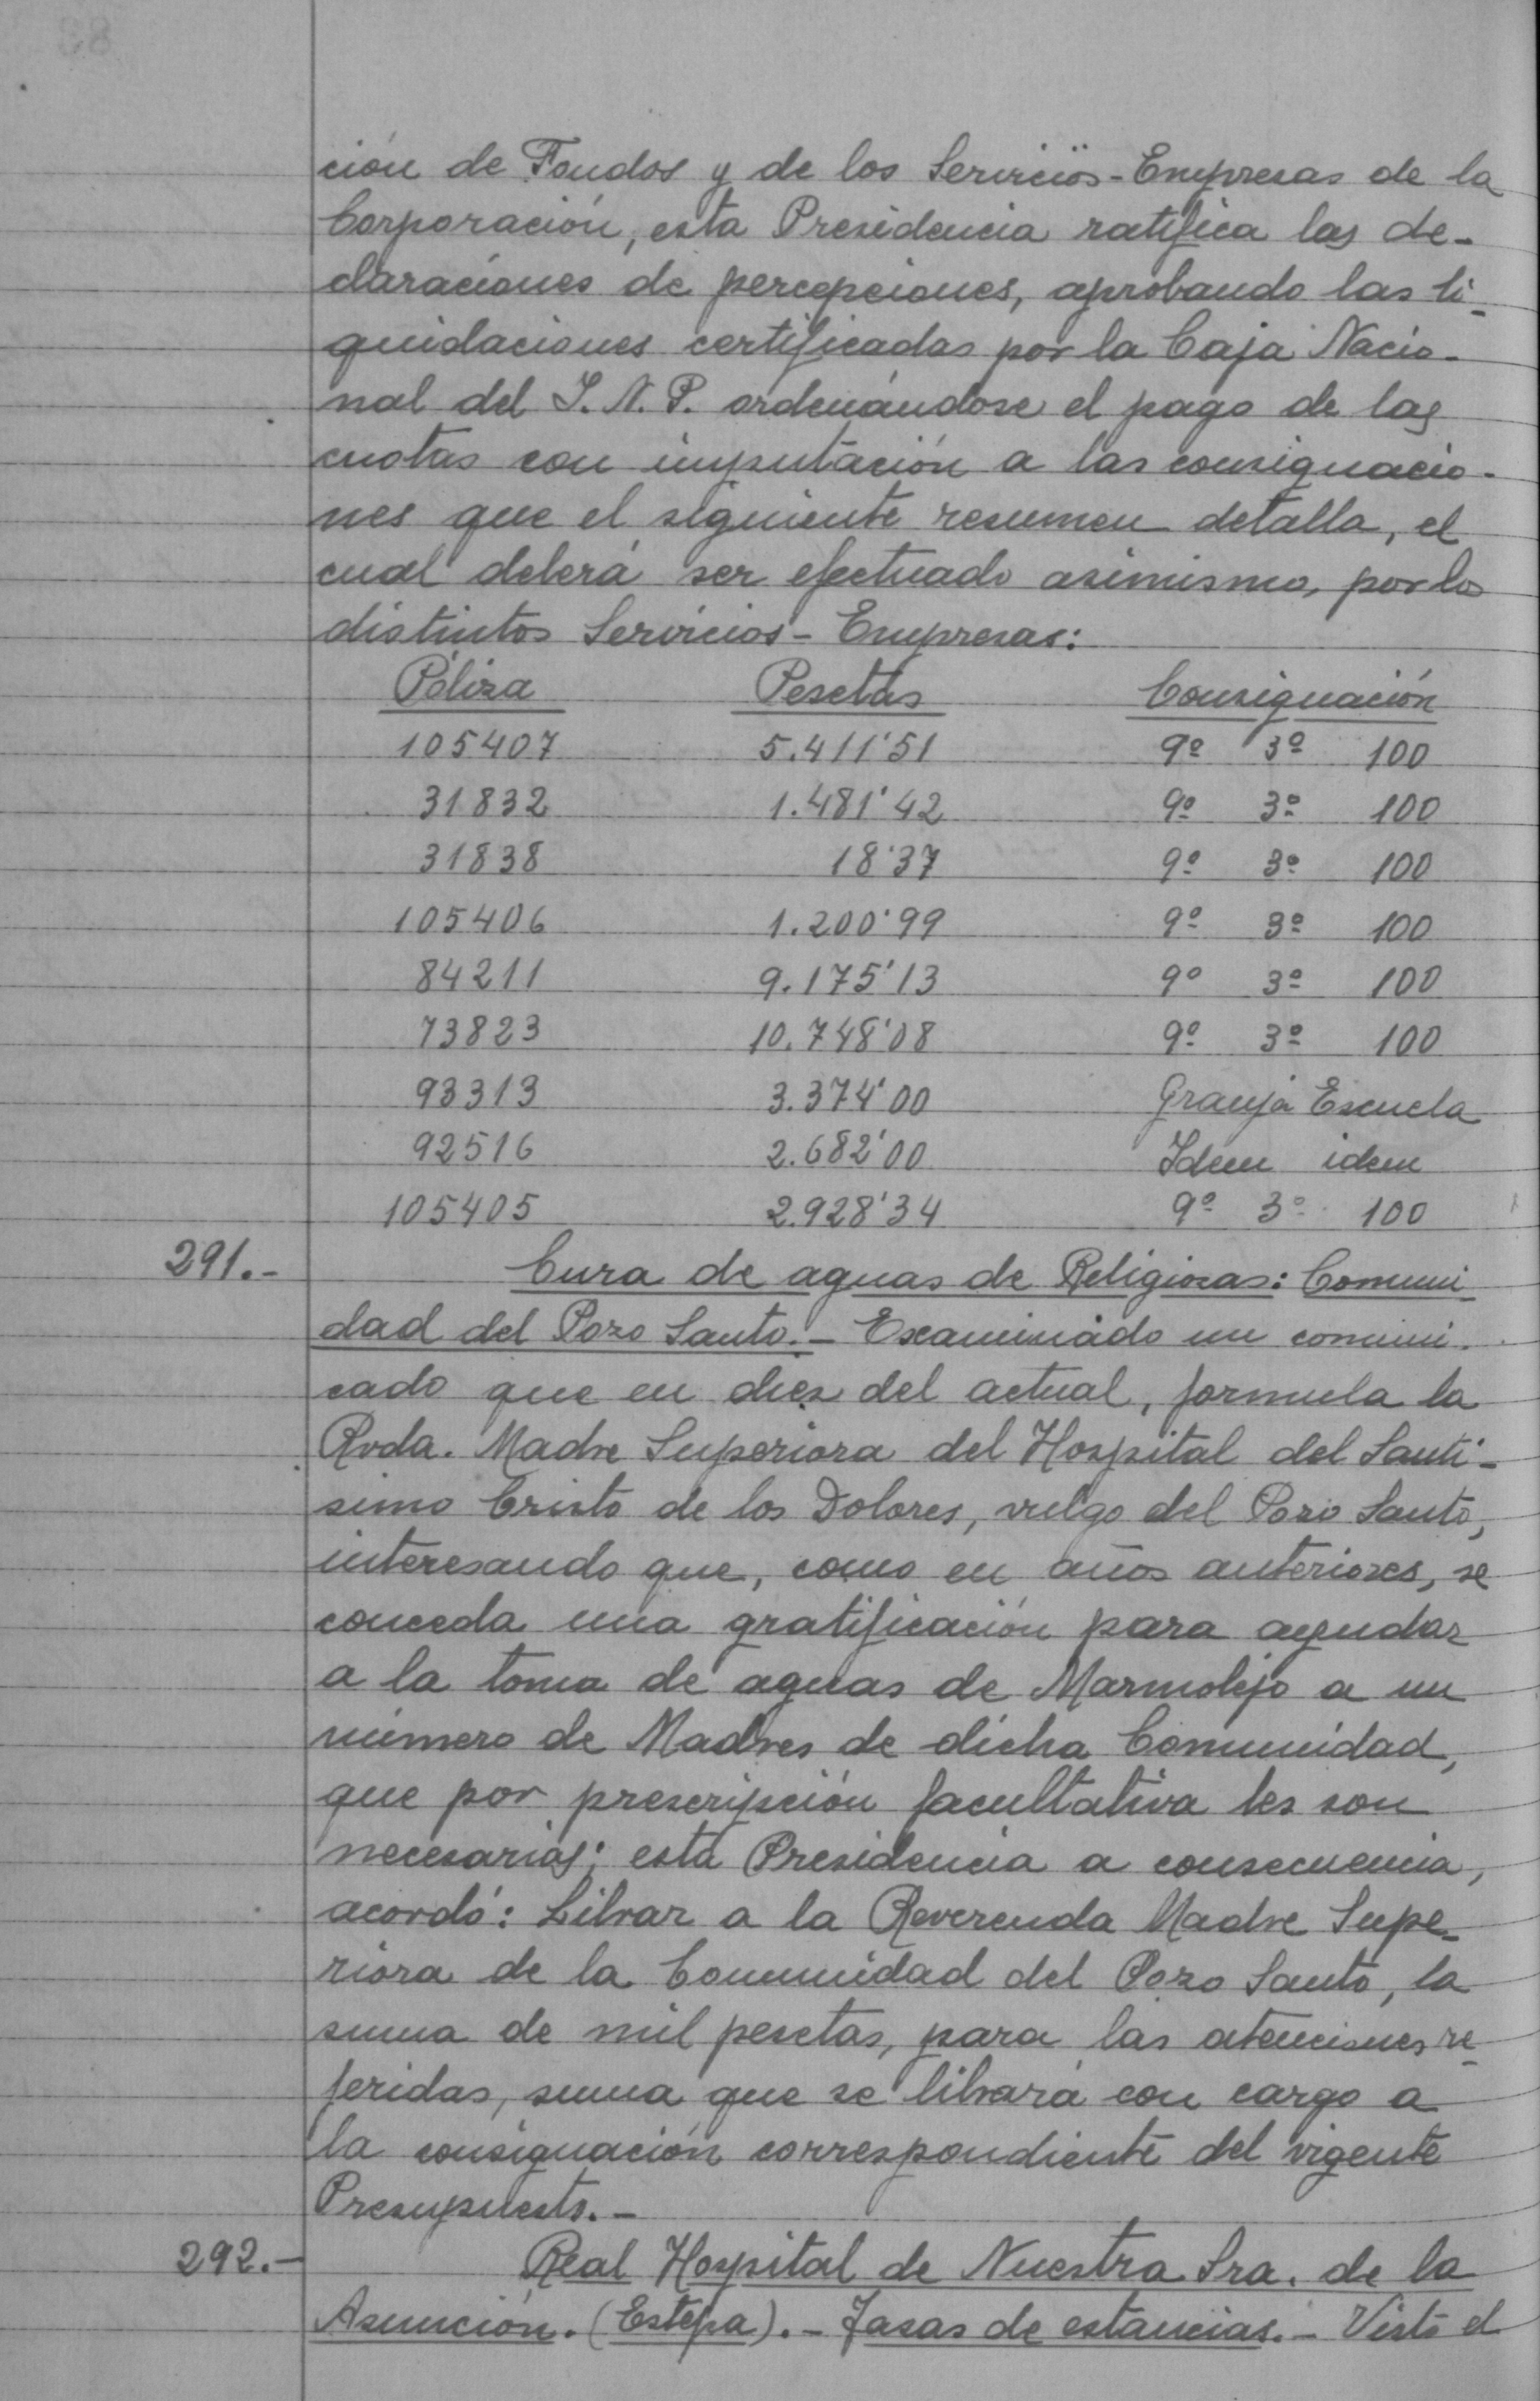 ción de Fondos y de los Servicios-Empresas de la
Corporación, esta Presidencia ratifica las de-
claraciones de percepciones, aprobando las li-
quidaciones certificadas por la Caja Nacio-
nal del I. N. P. ordenándose el pago de las
cuotas con imputación a las consignacio-
nes que el siguiente resumen detalla, el
cual deberá ser efectuado asimismo, por los
distintos Servicios-Empresas:
Póliza Pesetas Consignación
105407 5.411'51 9º 3º 100
31832 1.481'42 9º 3º 100
31838 18'37 9º 3º 100
105406 1.200'99 9º 3º 100
84211 9.175'13 9º 3º 100
73823 10.748'08 9º 3º 100
93313 3.374'00 Granja Escuela
92516 2.682'00 Idem idem
105405 2.928'34 9º 3º 100
291.- Cura de aguas de Religiosas: Comuni-
dad del Pozo Santo.- Examinado un comuni-
cado que en diez del actual, formula la
Rvda. Madre Superiora del Hospital del Santí-
simo Cristo de los Dolores, vulgo del Pozo Santo,
interesando que, como en años anteriores, se
conceda una gratificación para ayudar
a la toma de aguas de Marmolejo a un
número de Madres de dicha Comunidad,
que por prescripción facultativa les son
necesarias; esta Presidencia a consecuencia,
acordó: Librar a la Reverenda Madre Supe-
riora de la Comunidad del Pozo Santo, la
suma de mil pesetas, para las atenciones re-
feridas, suma que se librará con cargo a
la consignación correspondiente del vigente
Presupuesto.-
292.- Real Hospital de Nuestra Sra. de la
Asunción. (Estepa).- Tasas de estancias.- Visto el